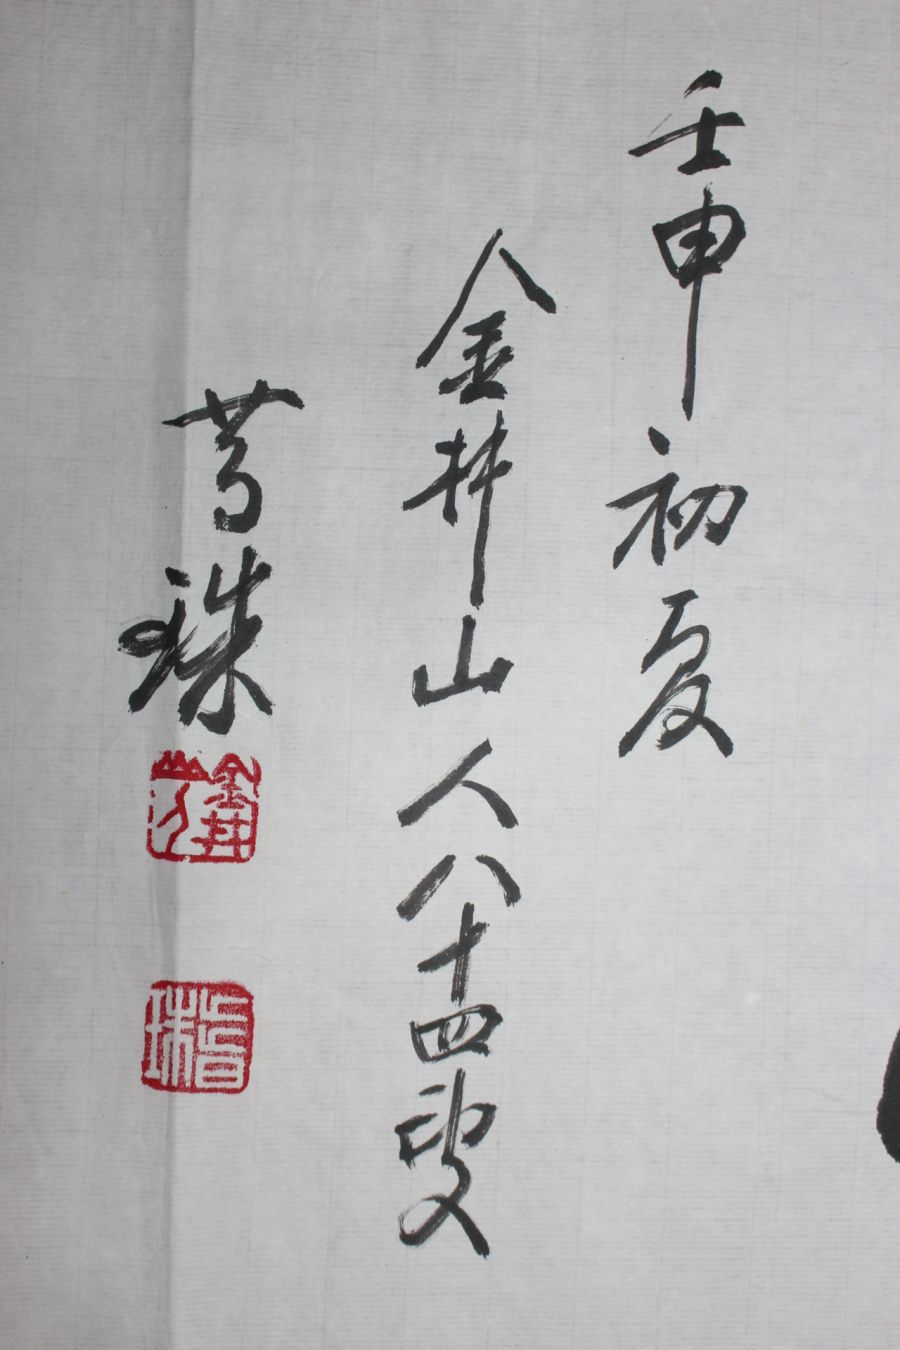 壬申初夏
金井山人八十四叟
珠
金井山人
珠